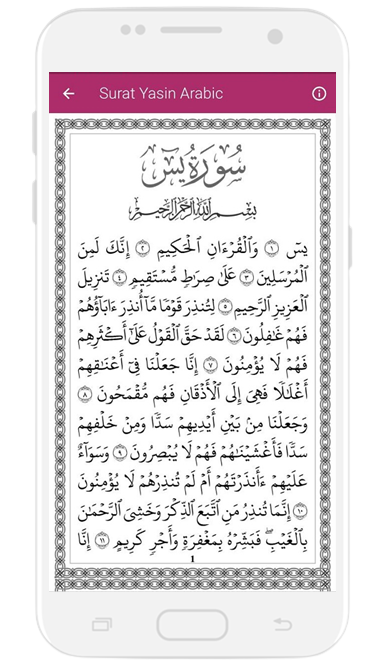 Surat Yasin Arabic
سُورَةُ يسٓ
بِسْمِ ٱللَّهِ ٱلرَّحْمَٰنِ ٱلرَّحِيمِ
يسٓ ١ وَٱلْقُرْءَانِ ٱلْحَكِيمِ ٢ إِنَّكَ لَمِنَ
ٱلْمُرْسَلِينَ ٣ عَلَىٰ صِرَٰطٍ مُّسْتَقِيمٍ ٤ تَنزِيلَ
ٱلْعَزِيزِ ٱلرَّحِيمِ ٥ لِتُنذِرَ قَوْمًا مَّآ أُنذِرَ ءَابَآؤُهُمْ
فَهُمْ غَٰفِلُونَ ٦ لَقَدْ حَقَّ ٱلْقَوْلُ عَلَىٰٓ أَكْثَرِهِمْ
فَهُمْ لَا يُؤْمِنُونَ ٧ إِنَّا جَعَلْنَا فِىٓ أَعْنَٰقِهِمْ
أَغْلَٰلًا فَهِىَ إِلَى ٱلْأَذْقَانِ فَهُم مُّقْمَحُونَ ٨
وَجَعَلْنَا مِنۢ بَيْنِ أَيْدِيهِمْ سَدًّا وَمِنْ خَلْفِهِمْ
سَدًّا فَأَغْشَيْنَٰهُمْ فَهُمْ لَا يُبْصِرُونَ ٩ وَسَوَآءٌ
عَلَيْهِمْ ءَأَنذَرْتَهُمْ أَمْ لَمْ تُنذِرْهُمْ لَا يُؤْمِنُونَ
١٠ إِنَّمَا تُنذِرُ مَنِ ٱتَّبَعَ ٱلذِّكْرَ وَخَشِىَ ٱلرَّحْمَٰنَ
بِٱلْغَيْبِ ۖ فَبَشِّرْهُ بِمَغْفِرَةٍ وَأَجْرٍ كَرِيمٍ ١١ إِنَّا
1